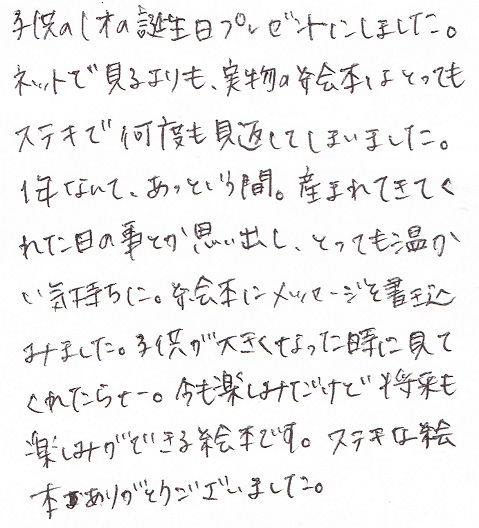 子供の1才の誕生日プレゼントにしました。
ネットで見るよりも、実物の絵本はとっても
ステキで何度も見返してしまいました。
1年なんて、あっという間。産まれてきてく
れた日の事とか思い出し、とっても温か
い気持ちに。絵本にメッセージを書き込
みました。子供が大きくなった時に見て
くれたらなー。今も楽しみだけど将来も
楽しみができる絵本です。ステキな絵
本ありがとうございました。